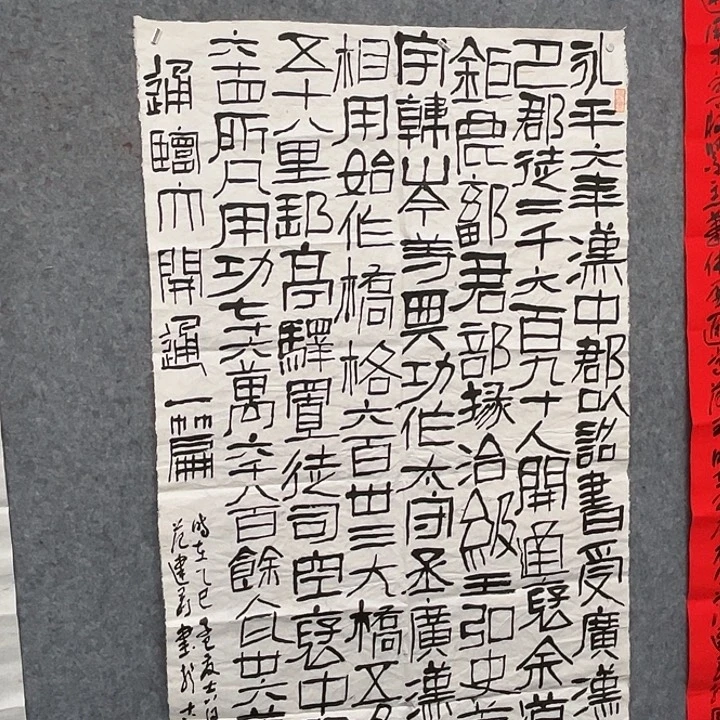 永平六年漢中郡以詔書受廣漢
巴郡徒二千六百九十人開通褒余道
鉅鹿鄐君部掾冶級王弘史荀
宇韓岑等興功作太守丞廣漢
相用始作橋格六百卅三大橋五為
五十八里郵亭驛置徒司空褒中
六十四所凡用功七十六萬六千八百餘人瓦卅六萬
大開通一篇
時在乙巳
書於